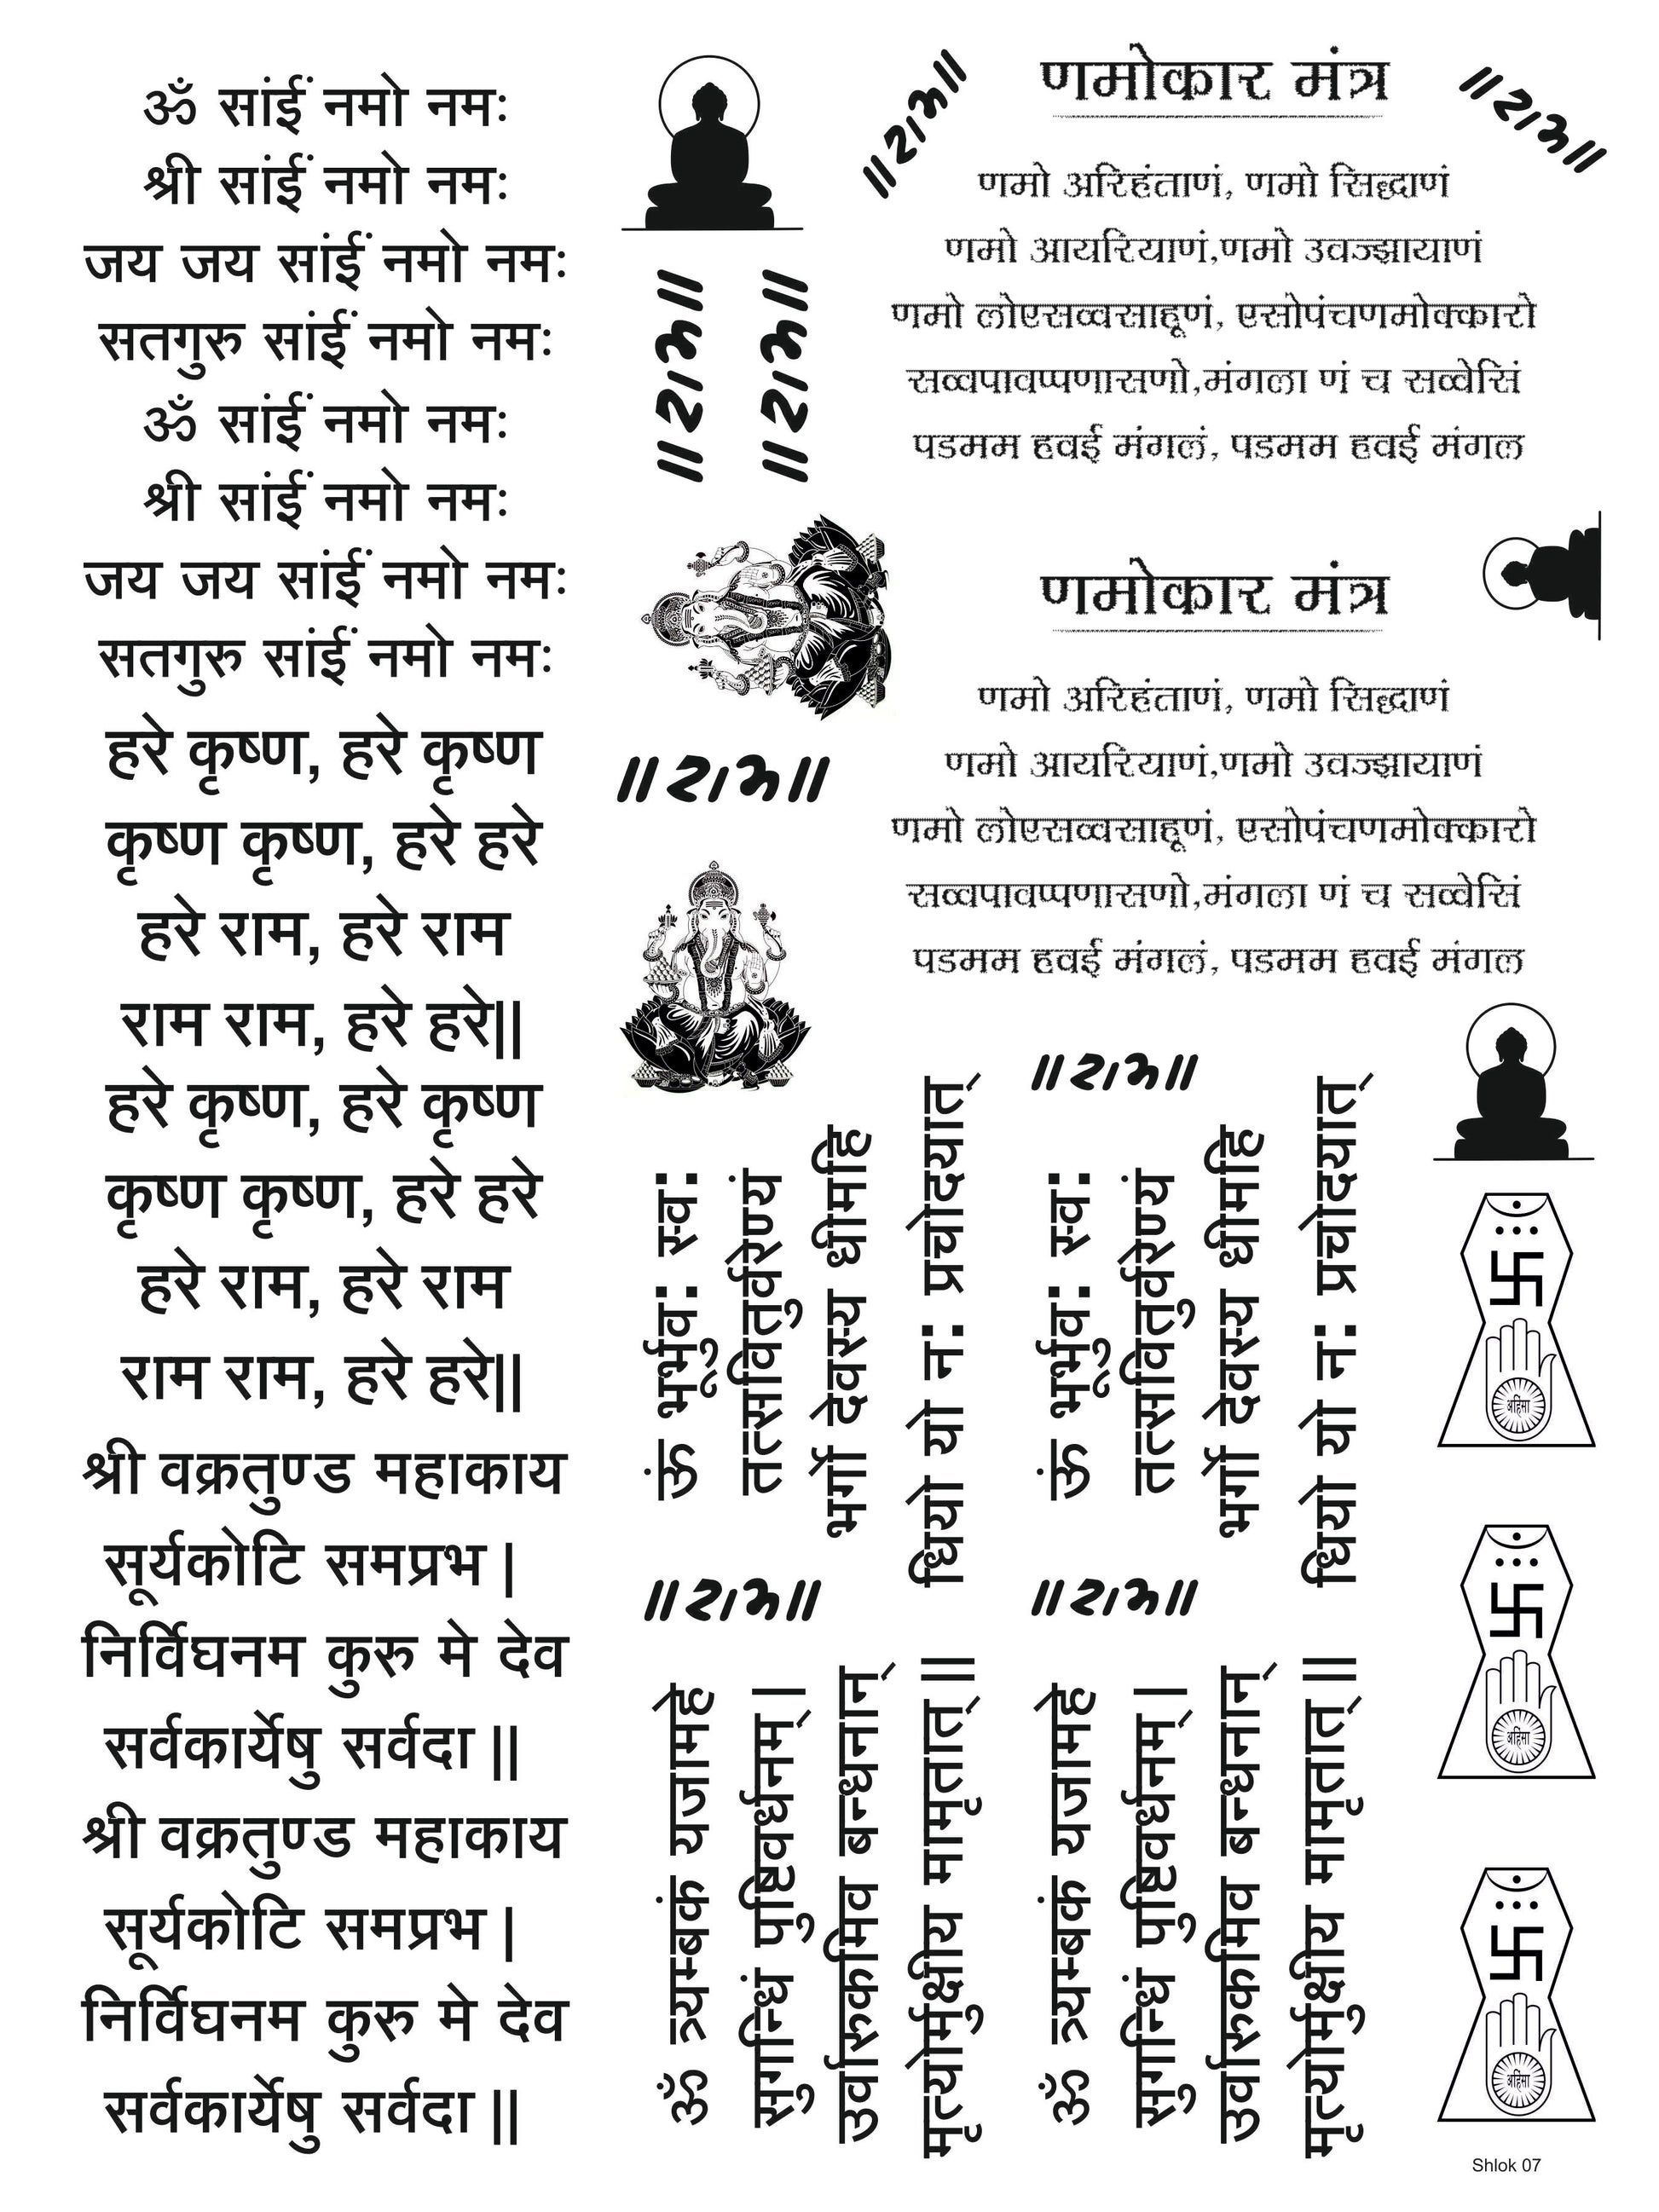 ॐ सांईं नमो नमः
श्री सांईं नमो नमः
जय जय सांईं नमो नमः
सतगुरु सांईं नमो नमः
ॐ सांईं नमो नमः
श्री सांईं नमो नमः
जय जय सांईं नमो नमः
सतगुरु सांईं नमो नमः
हरे कृष्ण, हरे कृष्ण
कृष्ण कृष्ण, हरे हरे
हरे राम, हरे राम
राम राम, हरे हरे||
हरे कृष्ण, हरे कृष्ण
कृष्ण कृष्ण, हरे हरे
हरे राम, हरे राम
राम राम, हरे हरे||
श्री वक्रतुण्ड महाकाय
सूर्यकोटि समप्रभ |
निर्विघनम कुरु मे देव
सर्वकार्येषु सर्वदा ||
श्री वक्रतुण्ड महाकाय
सूर्यकोटि समप्रभ |
निर्विघनम कुरु मे देव
सर्वकार्येषु सर्वदा ||
॥ राम ॥
॥ राम ॥
॥ राम ॥
॥ राम ॥
णमोकार मंत्र
णमो अरिहंताणं, णमो सिद्धाणं
णमो आयरियाणं,णमो उवज्झायाणं
णमो लोएसव्वसाहूणं, एसोपंचणमोक्कारो
सव्वपावप्पणासणो,मंगला णं च सव्वेसिं
पडमम हवई मंगलं, पडमम हवई मंगल
॥ राम ॥
णमोकार मंत्र
णमो अरिहंताणं, णमो सिद्धाणं
णमो आयरियाणं,णमो उवज्झायाणं
णमो लोएसव्वसाहूणं, एसोपंचणमोक्कारो
सव्वपावप्पणासणो,मंगला णं च सव्वेसिं
पडमम हवई मंगलं, पडमम हवई मंगल
ऊं भूर्भुव: स्व:
तत्सवितुर्वरेण्यं
भर्गो देवस्य धीमहि
धियो यो न: प्रचोदयात्
॥ राम ॥
ऊं भूर्भुव: स्व:
तत्सवितुर्वरेण्यं
भर्गो देवस्य धीमहि
धियो यो न: प्रचोदयात्
॥ राम ॥
ॐ त्र्यम्बकं यजामहे
सुगन्धिं पुष्टिवर्धनम् |
उर्वारुकमिव बन्धनान्
मृत्योर्मुक्षीय मामृतात् ||
॥ राम ॥
ॐ त्र्यम्बकं यजामहे
सुगन्धिं पुष्टिवर्धनम् |
उर्वारुकमिव बन्धनान्
मृत्योर्मुक्षीय मामृतात् ||
अहिंसा
अहिंसा
अहिंसा
Shlok 07